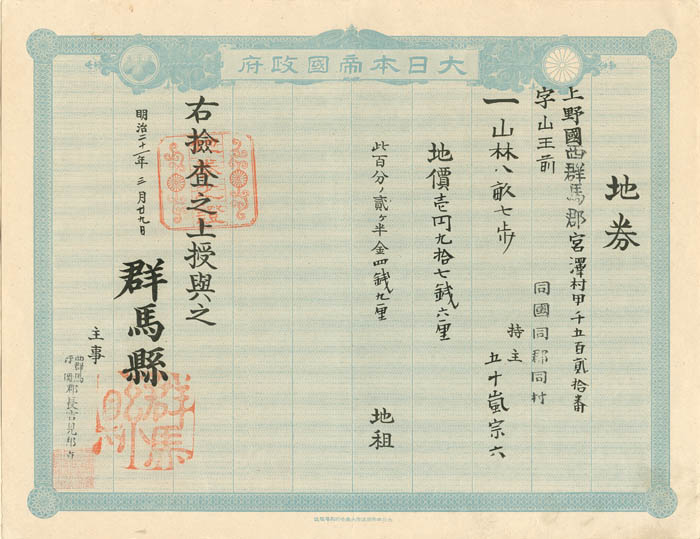 大日本帝國政府
地券
上野國西群馬郡宮澤村甲千五百貳拾番
字山王前
同國同郡同村
持主 五十嵐宗六
一山林八畝七歩
地價壱円九拾七錢六厘
此百分ノ貳ヶ半金四錢九厘
地租
右檢查之上授與之
明治二十一年三月廿九日
群馬縣
主事
西群馬
郡長
群馬